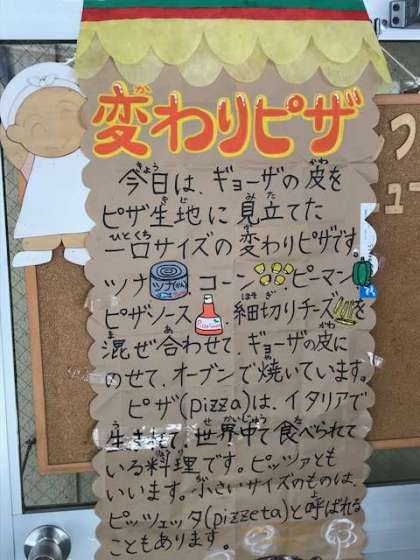 変わりピザ
今日は、ギョーザの皮を
ピザ生地に見立てた
一口サイズの変わりピザです。
ツナ、コーン、ピーマン、
ピザソース、細切りチーズを
混ぜ合わせて、ギョーザの皮に
のせて、オーブンで焼いています。
ピザ(pizza)は、イタリアで
生まれて、世界中で食べられて
いる料理です。ピッツァとも
いいます。小さいサイズのものは、
ピッツェッタ(pizzeta)と呼ばれる
こともあります